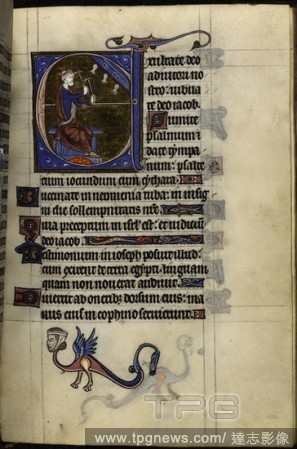 Exultate deo
adiutori no
stro: iubila
te deo iacob.
Sumite
psalmum et
date tympa
num: psalte
rium iocundum cum cythara.
cinate in neomenia tuba: in insig
ni die sollempnitatis
preceptum in est: et iudicium
deo iacob.
Testimonium in ioseph posuit illud:
cum exiret de terra egypti: linguam
quam non nouerat audiuit.
ab dorsum eius: ma
nus eius in cophino seruierunt.
TPG
www.tpgnews.com/達志影像